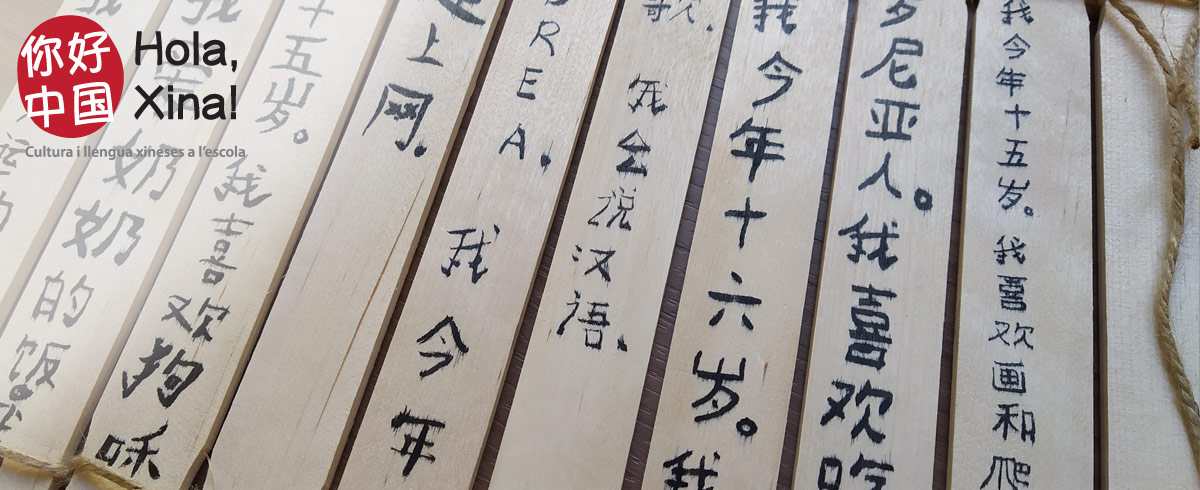 你好
中国
Hola,
Xina!
Cultura i llengua xineses a l'escola
奶奶的饭
十五岁。我喜欢狗咊
上网.
REA. 我今年
歌. 我会说汉语.
我今年十六岁。我
尼亚人。我喜欢吃
我今年十五岁。我喜欢画和爬